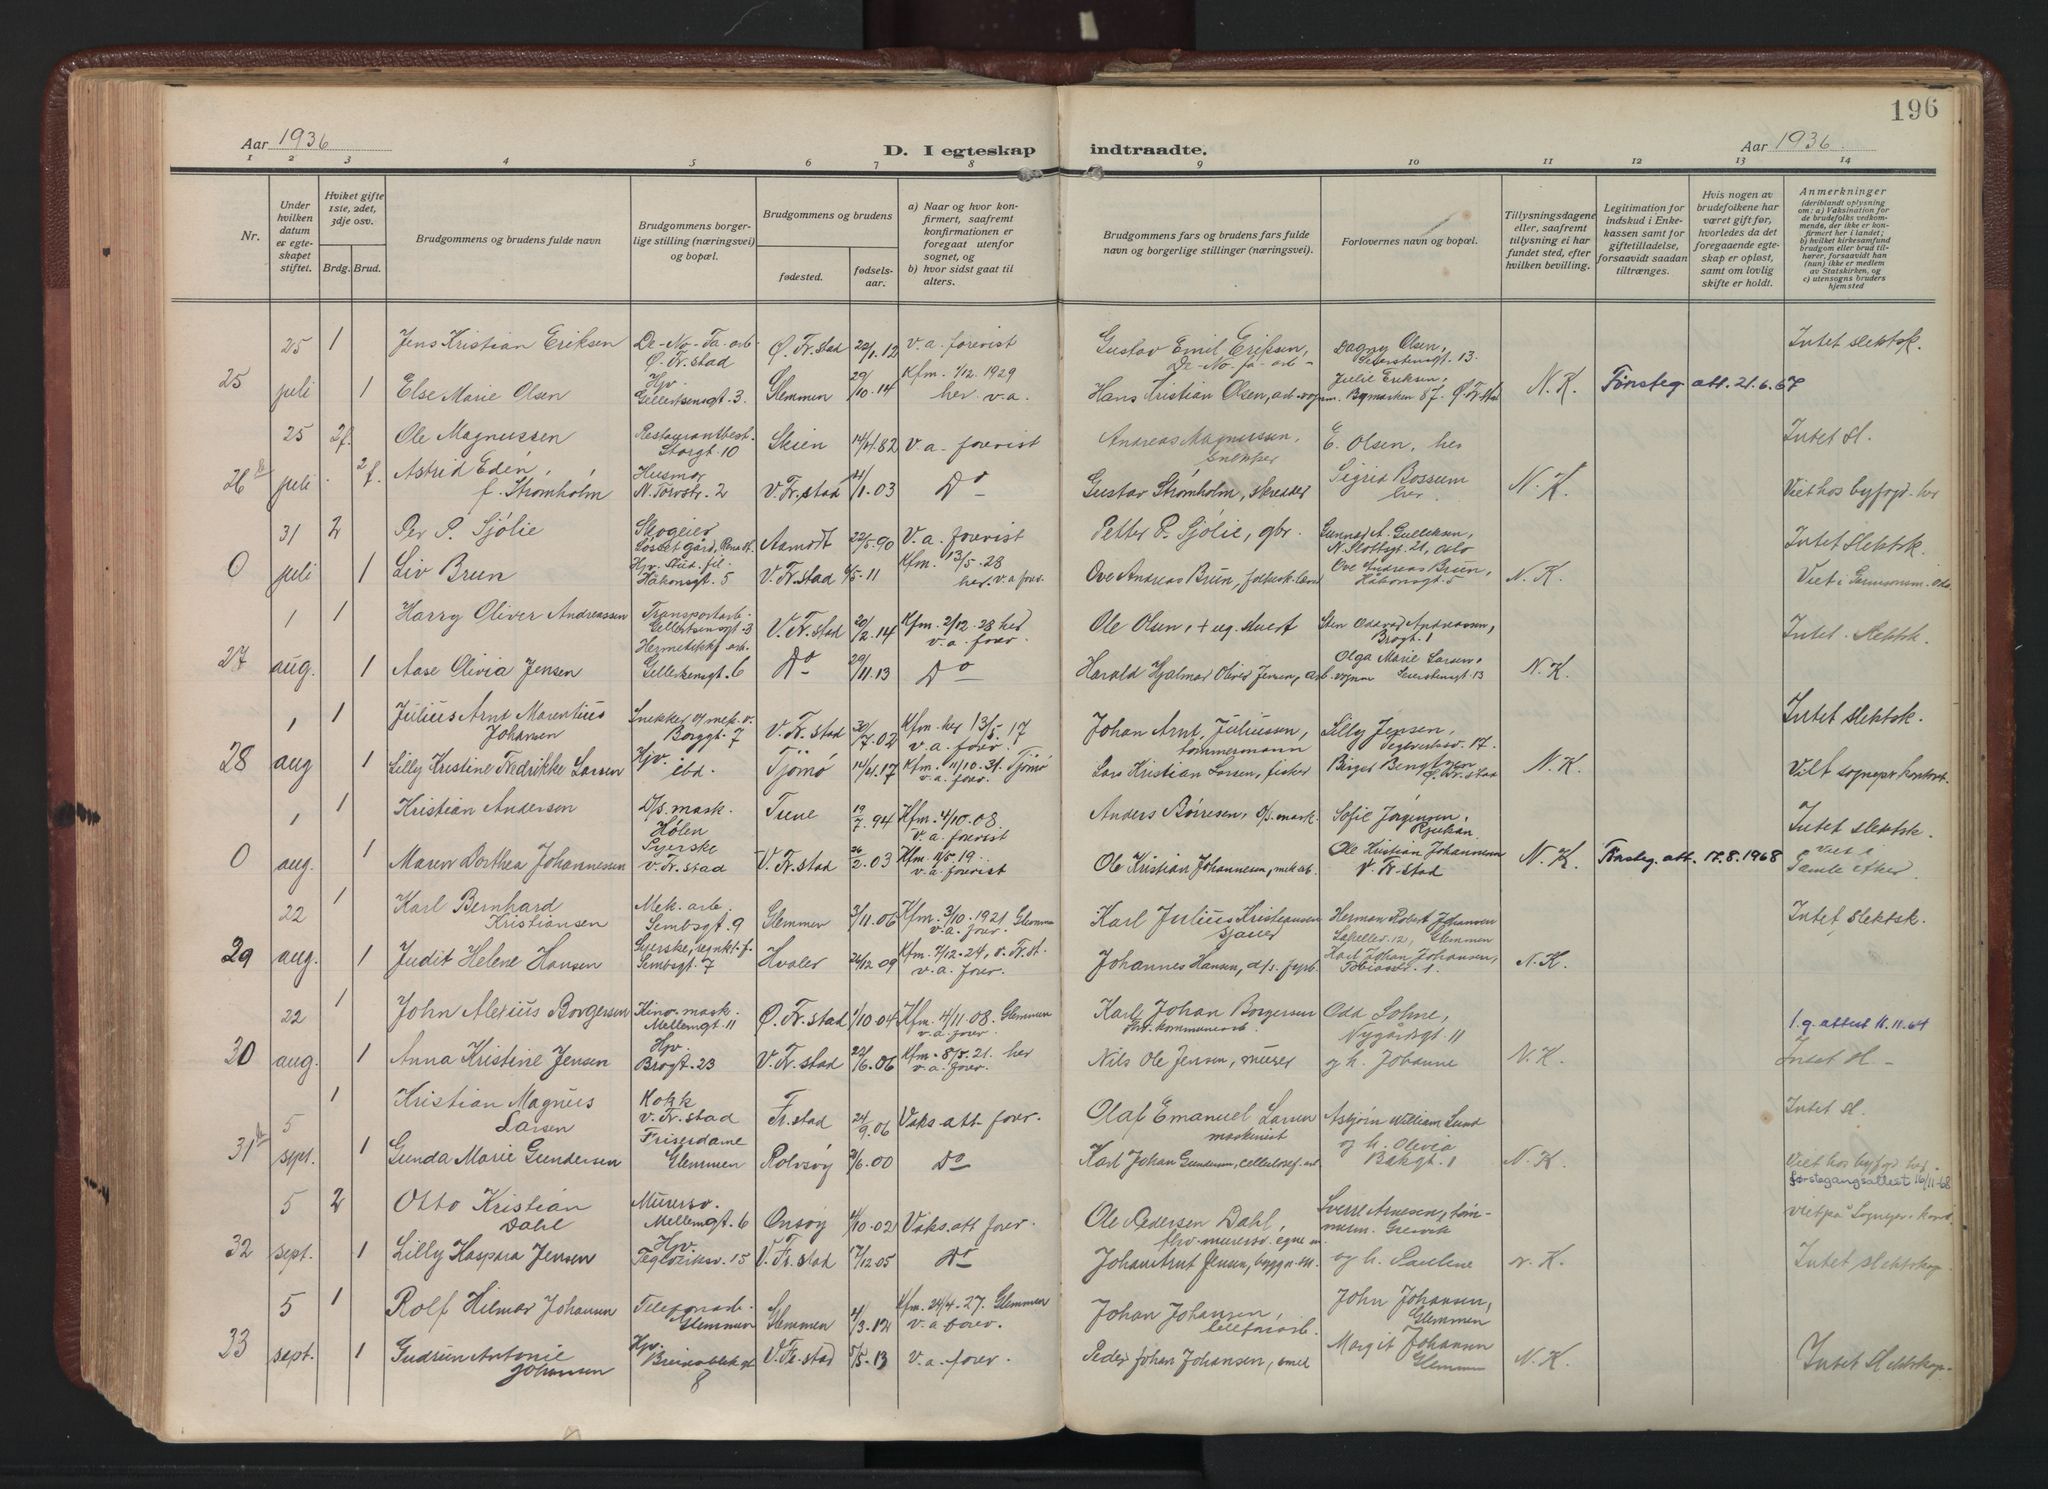 196
Aar 1936
D. I egteskap indtraadte.
Aar 1936.
1 2 3 4 5 6 7 8 9 10 11 12 13 14
Nr.
Under hvilken datum er egteskapet stiftet.
Hviket gifte 1ste, 2det, 3dje osv.
Brdg. Brud.
Brudgommens og brudens fulde navn
Brudgommens borgerlige stilling (næringsvei) og bopæl.
Brudgommens og brudens
fødested.
fødselsaar.
a) Naar og hvor konfirmert, saafremt konfirmationen er foregaat utenfor sognet, og
b) hvor sidst gaat til alters.
Brudgommens fars og brudens fars fulde navn og borgerlige stillinger (næringsvei).
Forlovernes navn og bopæl.
Tillysningsdagene eller, saafremt tillysning ei har fundet sted, efter hvilken bevilling.
Legitimation for indskud i Enkekassen samt for giftetilladelse, forsaavidt saadan tiltrænges.
Hvis nogen av brudefolkene har været gift før, hvorledes da det foregaaende egteskap er opløst, samt om lovlig skifte er holdt.
Anmerkninger (deriblandt oplysning om: a) Vaksination for de brudefolks vedkommende, der ikke er konfirmert her i landet; b) hvilket kirkesamfund brudgom eller brud tilhører, forsaavidt han (hun) ikke er medlem av Statskirken, og c) utensogns bruders hjemsted
25 1 Jens Kristian Eriksen De-No-Fa-arb. Ø. Fr.stad Ø. Fr.stad 22/1.12 v.a. forevist Gustav Emil Eriksen, De-No-fa-arb- Dagny Olsen, 13. Intet slektsk.
25 juli 1 Else Marie Olsen Hjv. Gellertsensgt. 3 Glemmen 29/10.14 Kfm. 1/12.1929 her v.a. Hans Kristian Olsen, Julie Eriksen, Bymarken 87. Ø. Fr.stad N.K. Førsteg. att. 21.6.67
25 2f. Ole Magnussen Restaurantbest. Storgt. 10 Skien 82 v.a. forevist Andreas Magnussen, snekker E. Olsen, her Intet sl.
26 b juli 2f. Astrid Edén, f. Strømholm Husmor N. Torvstr. 2 V. Fr.stad 1.03 Do Gustav Strømholm, skredder Sigrid Bossum her N.K. Viet hos byfogd. her
31 2 Per P. Sjølie Skogeier Løsset gård, Rena st. Aamodt 22/5.90 V.a. forevist Petter P. Sjølie, gbr. Gunnar A. Gulliksen, N. Slottsgt. 21, Oslo Intet slektsk.
0 juli 1 Liv Brun Hjv. Stud. fil. Håkonsgt. 5 V. Fr.stad 5.11 Kfm. 13/5.28 her. v.a. for. Ove Andreas Brun, Ove Andreas Brun, Håkonsgt. 5 N.K. Viet i
1 1 Harry Oliver Andreassen Transportarb. Gellertsensgt. 3 V. Fr.stad 20/2.14 Kfm. 2/12.28 her v.a. forev. Ole Olsen, Sten Oddvar Andreassen, Brogt. 1 Intet. Slektsk.
27 aug. 1 Aase Olivia Jensen Hermetikkf. arb. Gellertsensgt. 6 Do 29/11.13 Do Harald Hjalmar Oliver Jensen, Olga Marie Larsen, 13 N.K.
1 1 Julius Arnt Marentius Johansen Snekker v/ mek. v. Borggt. 7 V. Fr.stad 30/7.02 Kfm. her 13/5.17 v.a. forev. Johan Arnt Juliussen, tømmermann Lilly Jensen, Teglverksv. 17. Intet slektsk.
28 aug 1 Lilly Kristine Fredrikke Larsen Hjv. ibd. Tjömö 17 Kfm. 11/10.31. Tjömö v.a. forev. Lars Kristian Larsen, fisker Birger Bengtsen Ø. Fr.stad N.K. Vilt sognepr. kontor.
1 1 Kristian Andersen D/s. mask. Hølen Tune 19/7.94 Kfm. 4/10.08 v.a. forevist Anders Børresen, d/s. mask. Sofie Jørgensen, Rjukan Intet slektsk.
0 aug. 1 Maren Dorthea Johannessen Syerske V. Fr.stad V. Fr.stad 26/2.03 Kfm. 1/5.19. v.a. forevist Ole Kristian Johannesen, mek. arb. Ole Kristian Johannesen V. Fr.stad N.K. Førsteg. att. 17.8.1968 Viet i Gamle Aker.
22 1 Karl Bernhard Kristiansen Mek. arb. Sembsgt 9 Glemmen 3/11.06 Kfm. 3/10.1921 Glemmen v.a. forev. Karl Julius Kristiansen sjauer Herman Robert Johansen 12, Glemmen Intet slektsk.
29 aug. 1 Judit Helene Hansen Syerske, Sembsgt. 7 Hvaler 26/12.09 Kfm. 7/12.24, Ø. Fr.st. v.a. forev. Johannes Hansen, d/s. fyrb. Karl Johan Johansen, 1. N.K.
22 1 John Alexius Borgersen Kino. mask. Mellemgt 11 Ø. Fr.stad 1/10.04 Kfm. 4/11.08. Glemmen v.a. forev. Karl Johan Borgersen fhv. kommunearb. Odd Sohne, Nygårdsgt 11 1.g. attest 11.11.64
30 aug. 1 Anna Kristine Jensen Hjv. Brogt. 23 V. Fr.stad 22/6.06 Kfm. 8/5.21. her v.a. forev. Nils Ole Jensen, murer og h. Johanne N.K. Intet sl -
5 1 Kristian Magnus Larsen Kokk V. Fr.stad Fr.stad 24/9.06 Vaks-att. forev. Olaf Emanuel Larsen maskinist Asbjørn William Lund og h. Olivia Bakgt. 1 Intet sl.
31 b sept. 1 Gunda Marie Gundersen Friserdame Glemmen Rolvsøy 3/6.00 Do Karl Johan Gundersen, cellulosef. arb N.K. Viet hos byfgd. her. førstegangsattest 16/11-68
5 2 Otto Kristian Dahl Murersv. Mellemgt. 6 Onsøy 10.02 Vaks. att. forev. Ole Pedersen Dahl, fhv. murersv. Sverre Arnesen, tømmerm. Gressvik Viet på Sognepr. kont.
32 sept. 1 Lilly Kaspara Jensen Hjv. Teglverksv. 15 V. Fr.stad 17/12.05 Do Johan Arnt Jensen, og h. Pauline N.K. Intet slektskap.
5 1 Rolf Hilmar Johansen Telefonarb. Glemmen Glemmen 4/3.12 Kfm. 24/4.27. Glemmen v.a. forev. Johan Johansen, telefonarb. John Johansen, Glemmen
33 sept. 1 Gudrun Antonie Johansen Hjv. 8 V. Fr.stad 5/5.13 v.a. forev. Peder Johan Johansen, Margit Johansen Glemmen N.K. Intet slektskap.